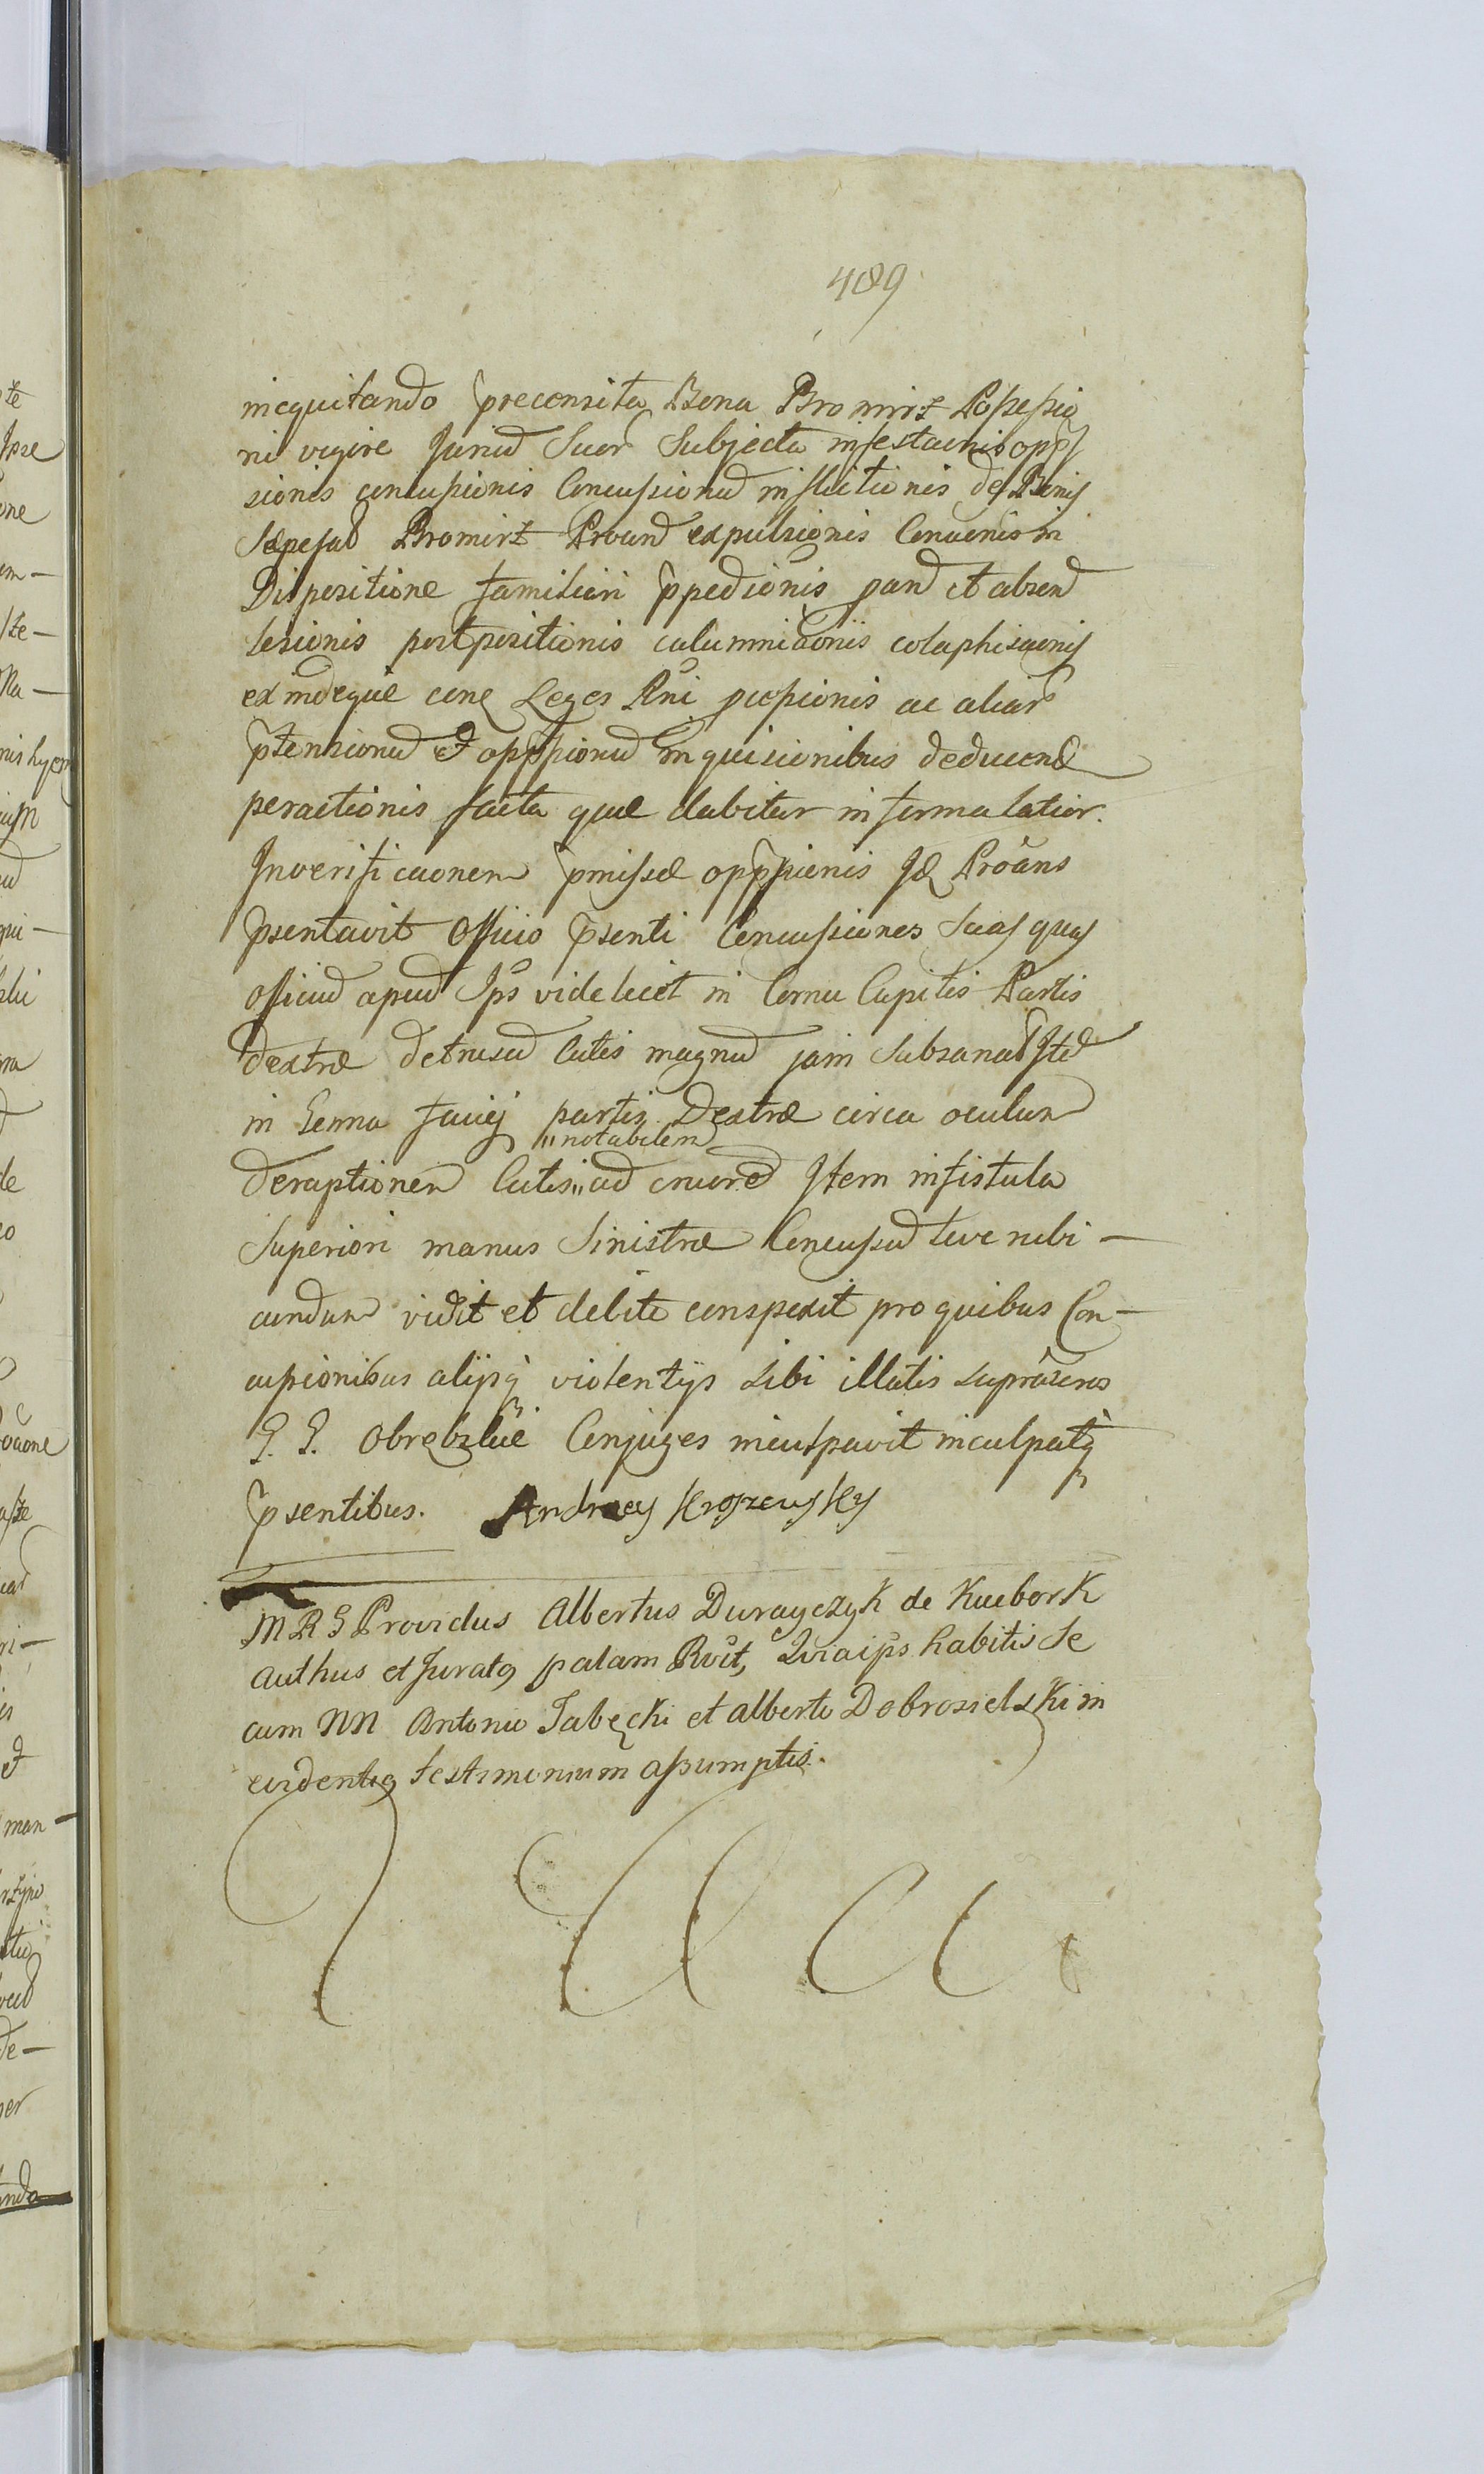 489
inequitando preconsita Bona Bromirz Possessio
ni vigore Jurium Suor Subjecta infestaonis opp
sionis concussionis Concussionum inflictionis de Bonis
Sæpefat Bromirz Proand expulsionis Conaonis in
Dispositione familiari ppedionis pand et absend
lesionis postpositionis calumniaonis colaphisaonis
exindeque cone Leges Rni ac aliar
ptensionum et opppionum inquisicionibus deducend
peractionis facta que dabitur in forma latior.
In verificaonem pmissæ opppionis Jd Proans
psentavit Officio psenti Concussiones suas quas
officium apud Ips videlicet in Cornu Capitis Partis
dextræ detrusum Cutis magnum jam subsanat Item
in Gemia faciej partis Dextræ circa oculum
"notabilem
deraptionem Cutis" ad cruorem Item in fistula
Superiori manus Sinistræ Concussum leve rubi-
cundum vidit et debite conspexit pro quibus Con-
cussionibus alijsq violentijs sibi illatis supraseros
G. G. Obrębskie Conjuges inculpavit inculpatq
psentibus. Andrzey Kroszewsky
MRG Providus Albertus Durayczyk de Kuebork
authus et Juratq palam Rvit, Quia ips habitis Se
cum NN Antonio Jabęcki et Alberto Dobrosielski in
evidentiq testimonium assumptis.